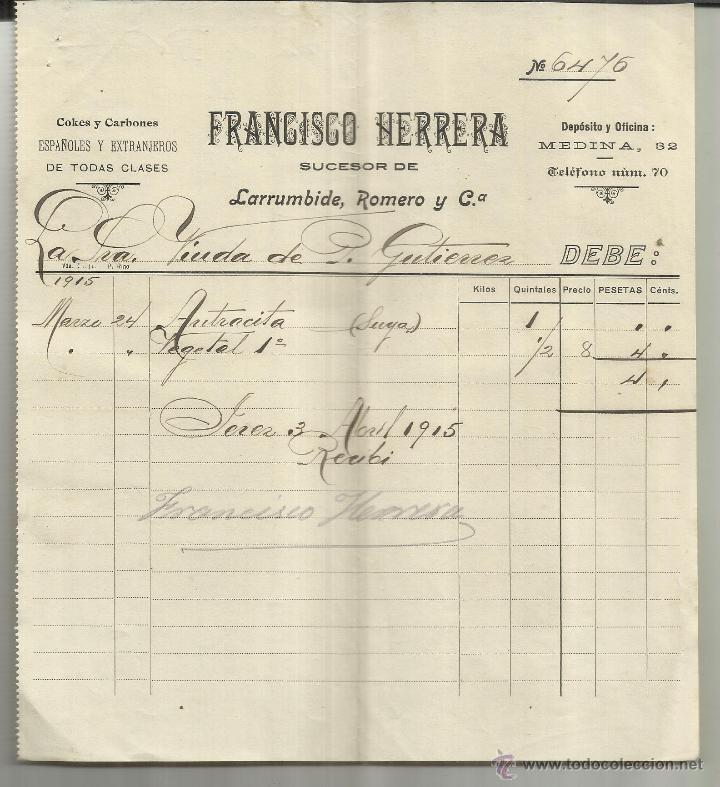 Nº 6476
Cokes y Carbones
ESPAÑOLES Y EXTRANJEROS
DE TODAS CLASES
FRANCISCO HERRERA
SUCESOR DE
Larrumbide, Romero y C.a
Depósito y Oficina:
MEDINA, 32
Teléfono núm. 70
La Sra. Viuda de P. Gutierrez DEBE:
1915
Kilos Quintales Precio PESETAS Cénts.
Marzo 24 Antracita (Suya) 1 " "
" " Vegetal 1ª 1/2 8 4 "
4 "
Jerez 3 Abril 1915
Recibi
Francisco Herrera
www.todocoleccion.net